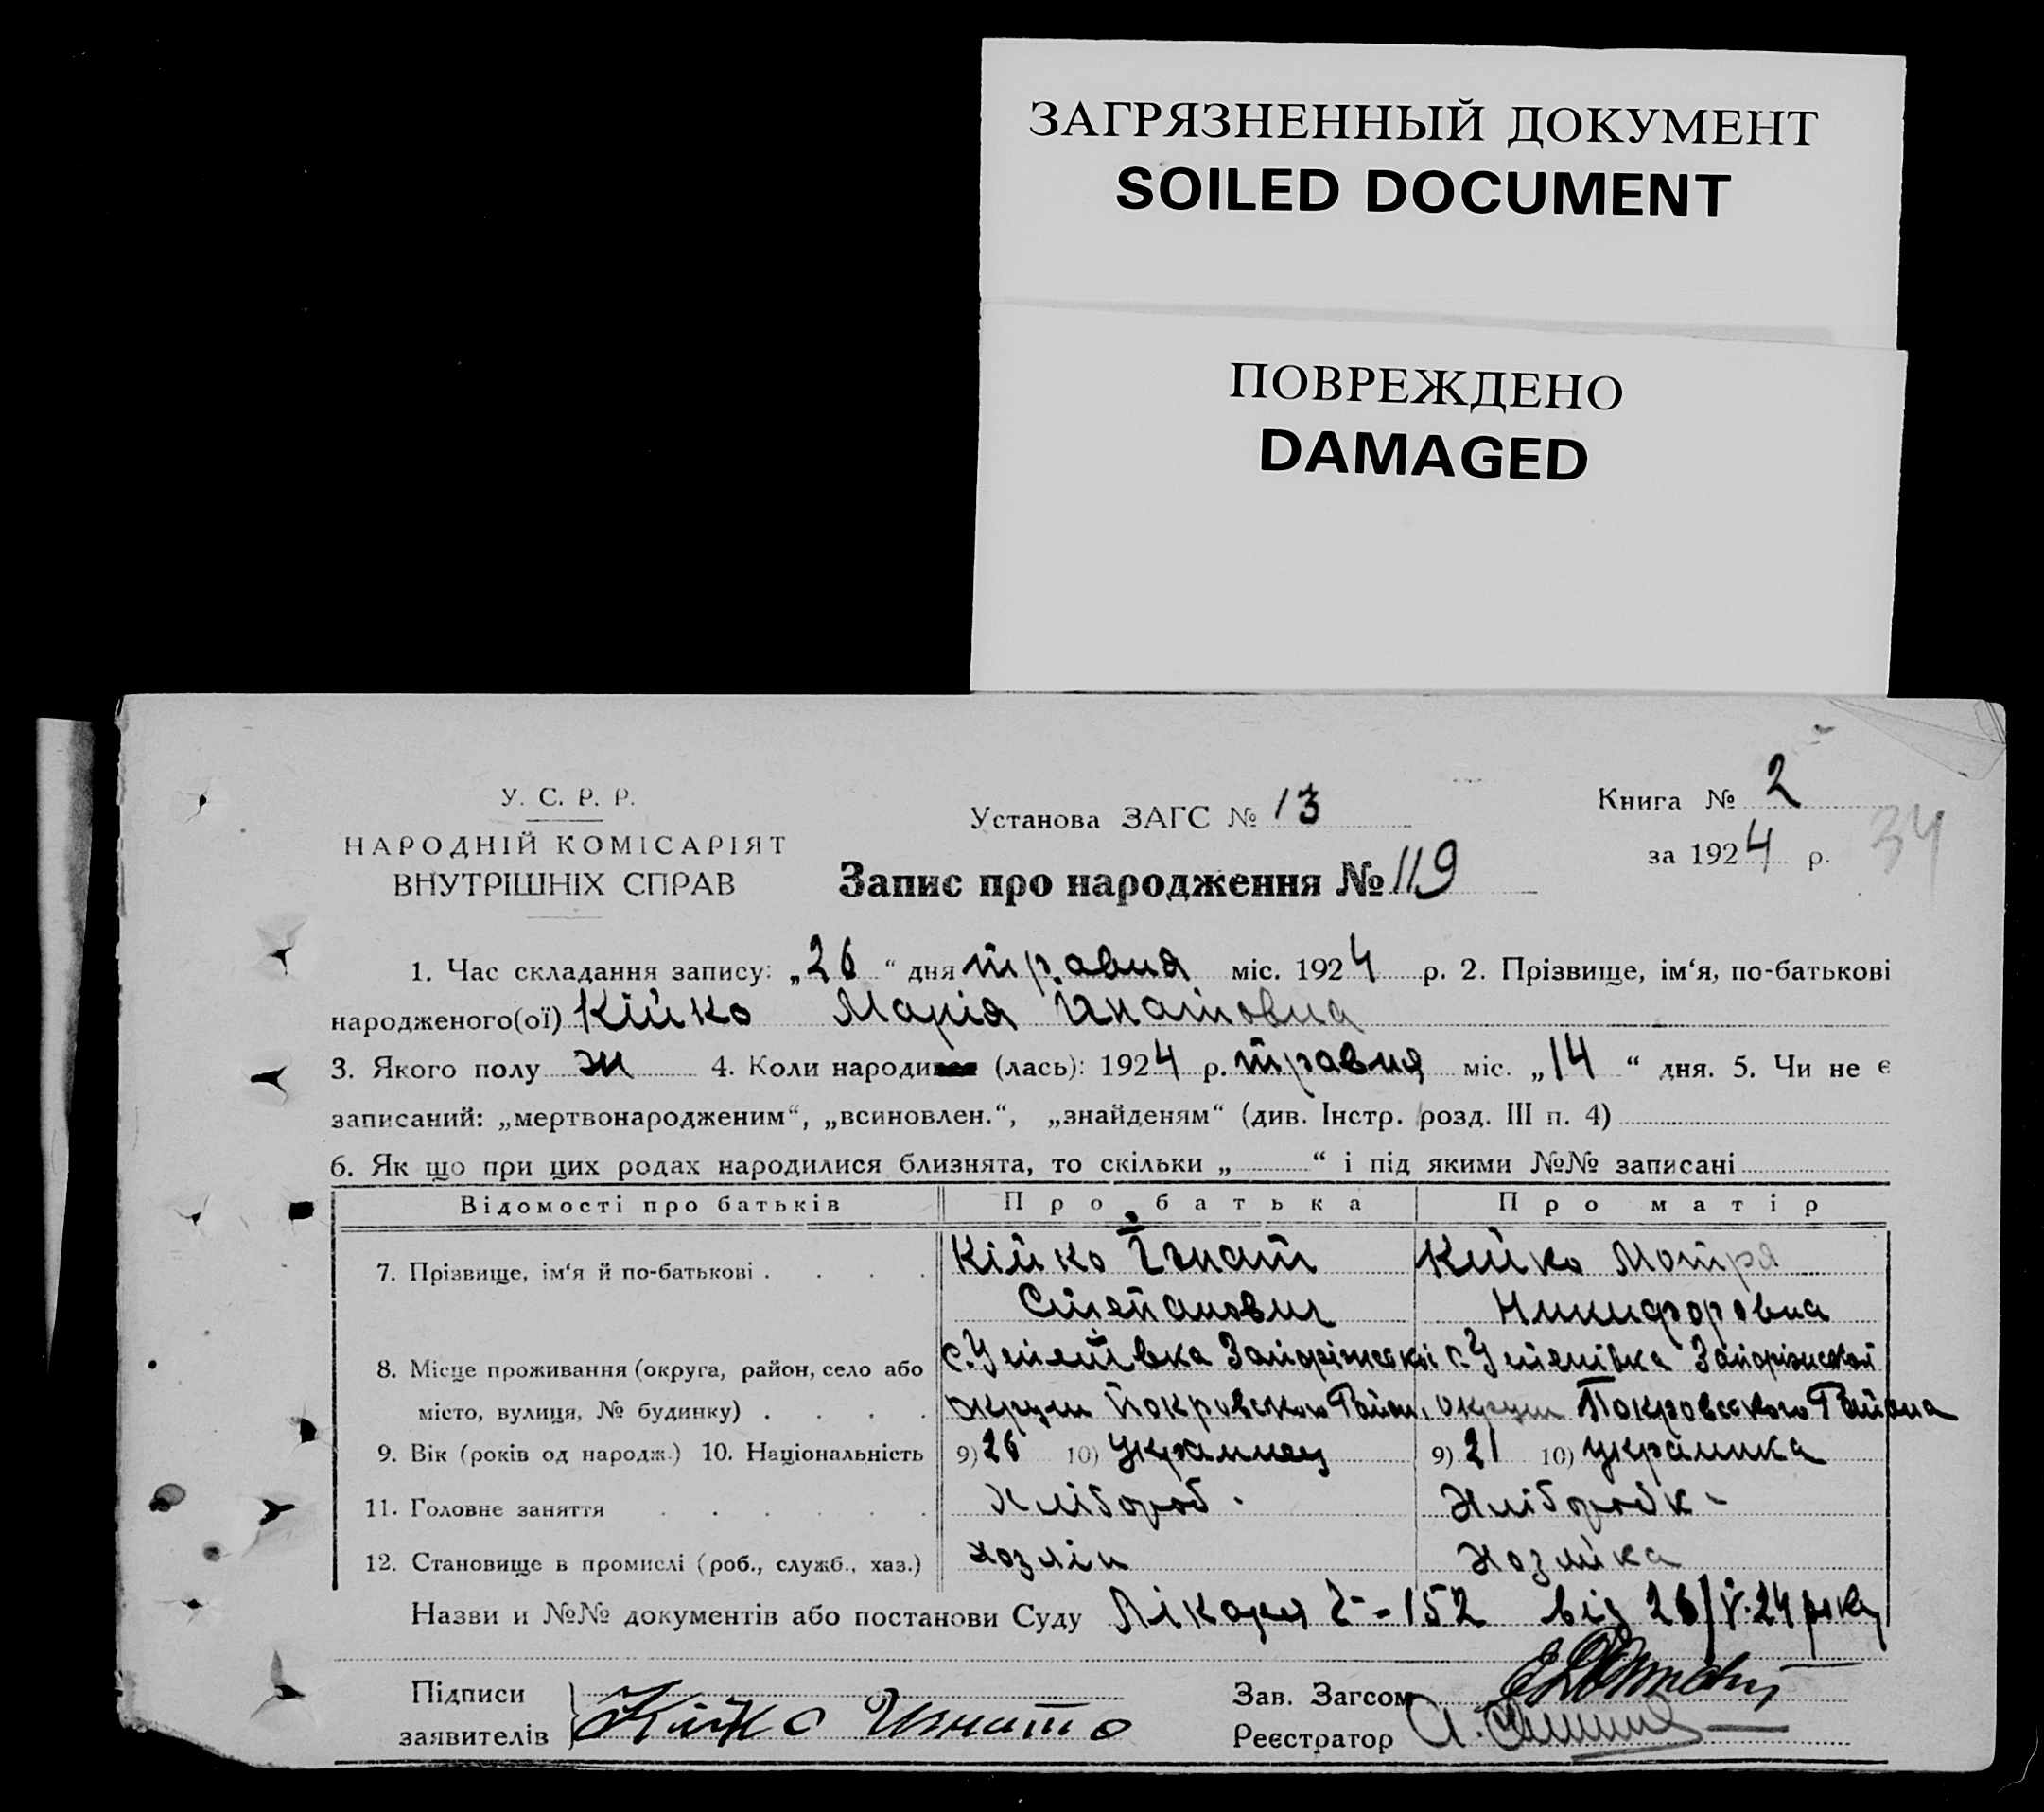 ЗАГРЯЗНЕННЫЙ ДОКУМЕНТ
SOILED DOCUMENT
ПОВРЕЖДЕНО
DAMAGED
У. С. Р. Р.
НАРОДНІЙ КОМІСАРІЯТ
ВНУТРІШНІХ СПРАВ
Установа ЗАГС № 13
Запис про народження № 119
Книга № 2
за 1924 р.
34
1. Час складання запису: „26“ дня травня міс. 1924 р. 2. Прізвище, ім‘я, по-батькові
народженого(ої) Кійко Марія Ігнатовна
3. Якого полу ж 4. Коли народи (лась): 1924 р. травня міс. „14“ дня. 5. Чи не є
записаний: „мертвонародженим“, „всиновлен.“, „знайденям“ (див. Інстр. розд. III п. 4)
6. Як що при цих родах народилися близнята, то скільки „ “ і під якими №№ записані
Відомості про батьків Про батька Про матір
7. Прізвище, ім‘я й по-батькові . . . . Кійко Ігнат Кийко Мотря
Степанович Никифоровна
8. Місце проживання (округа, район, село або с. Успенівка Запоріжської с. Успенівка Запоріжской
місто, вулиця, № будинку) . . . . округи Покровського Район. округи Покровського Района
9. Вік (років од народж.) 10. Національність 9) 26 10) Украинец 9) 21 10) украинка
11. Головне заняття . . . . . . Хлібороб. Хліборобк-
12. Становище в промислі (роб., служб., хаз.) хозяін хозяйка
Назви и №№ документів або постанови Суду Лікаря 152 від 26/V.24 року
Підписи
заявителів Кійко Игнат
Зав. Загсом
Реєстратор